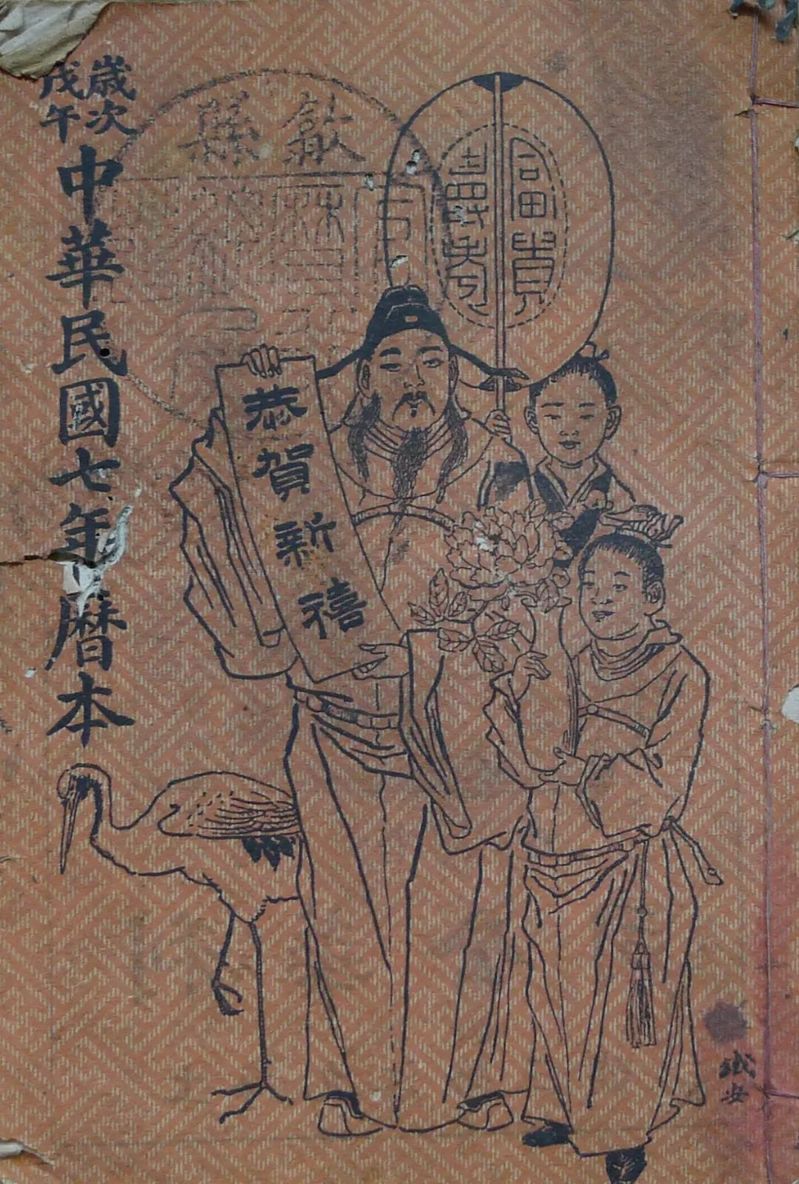 歲次
戊午
中華民國七年曆本
歙縣
富貴
壽考
恭賀新禧